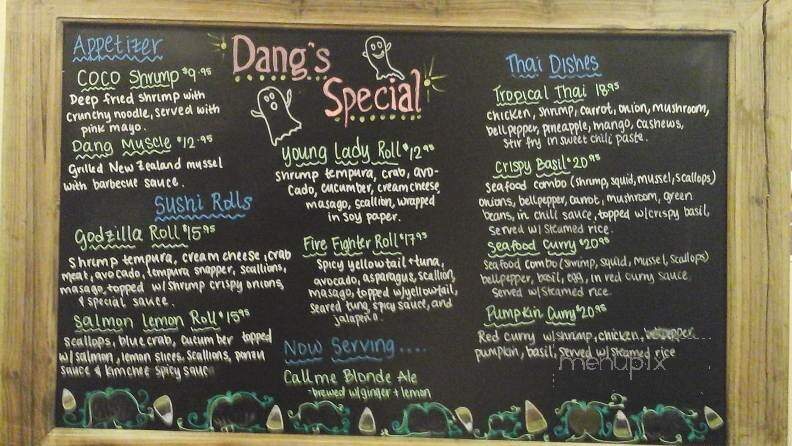 Appetizer
COCO Shrimp $9.95
Deep fried shrimp with
crunchy noodle, served with
pink mayo.
Dang Muscle $12.95
Grilled New Zealand mussel
with barbecue sauce.
Sushi Rolls
Godzilla Roll $15.95
Shrimp tempura, cream cheese, crab
meat, avocado, tempura snapper, scallions,
masago, topped w/shrimp crispy onions,
& special sauce.
Salmon Lemon Roll $15.95
Scallops, blue crab, cucumber topped
w/salmon, lemon slices, scallions, ponzu
sauce & kimchee spicy sauce
Dang's
Special
Young Lady Roll $12.95
shrimp tempura, crab, avo-
cado, cucumber, cream cheese,
masago, scallion, wrapped
in soy paper.
Fire Fighter Roll $17.95
Spicy yellowtail + tuna,
avocado, asparagus, scallion,
masago, topped w/yellowtail,
seared tuna, spicy sauce, and
jalapeño.
Now Serving....
Call me Blonde Ale
-brewed w/ginger + lemon
Thai Dishes
Tropical Thai 18.95
chicken, shrimp, carrot, onion, mushroom,
bell pepper, pineapple, mango, cashews,
stir fry in sweet chili paste.
Crispy Basil $20.95
Seafood combo (shrimp, squid, mussel, scallops)
onions, bell pepper, carrot, mushroom, green
beans, in chili sauce, topped w/crispy basil,
served w/steamed rice.
Seafood Curry $20.95
Seafood combo (shrimp, squid, mussel, scallops)
bellpepper, basil, egg, in red curry sauce
Served w/steamed rice.
Pumpkin Curry $20.95
Red curry w/shrimp, chicken,
pumpkin, basil, served w/steamed rice
menupix